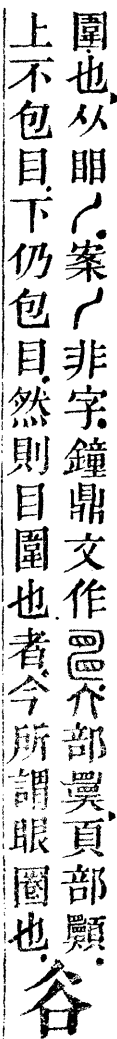 圍也从䀠𠂆案𠂆非字鐘鼎文作亣部頁部
上不包目下仍包目然則目圍也者今所謂眼圈也谷